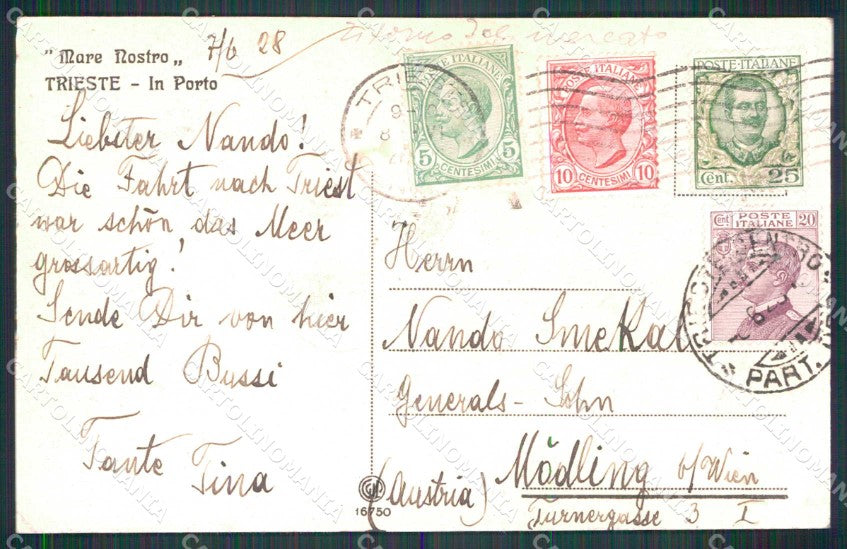 "Mare Nostro„ 7/6 28
TRIESTE – In Porto
ritorno del mercato
Liebster Nando!
Die Fahrt nach Triest
war schön, das Meer
grossartig!
Sende Dir von hier
Tausend Bussi
Tante
Tina
POSTE ITALIANE
5 5
CENTESIMI
POSTE ITALIANE
10 10
CENTESIMI
POSTE·ITALIANE
Cent. 25
Cent POSTE 20
ITALIANE
TRIESTE CENTRO
PART.
Herrn
Nando Smekal
Generals-Sohn
Mödling b/Wien
(Austria)
Turnergasse 3 I
16750
CARTOLINOMANIA